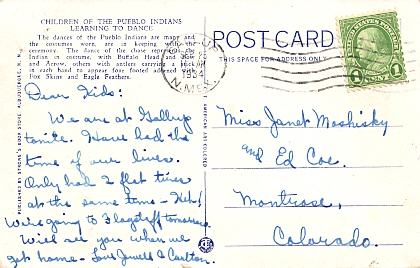 CHILDREN OF THE PUEBLO INDIANS
LEARNING TO DANCE
The dances of the Pueblo Indians are many and
the costumes worn, are in keeping with the
ceremony. The dance of the chase represents the
Indian in costume, with Buffalo Head and Bow
and Arrow, others with antlers carrying a stick
in each hand to appear four footed adorned with
Fox Skins and Eagle Feathers.
POST CARD
THIS SPACE FOR ADDRESS ONLY
1934
N. MEX.
1
Dear Kids:
We are at Gallup
tonite. Have had the
time of our lives.
Only had 2 flat tires
at the same time - Heh!
We're going to Flagstaff tomorrow
Will see you when we
get home - Love Jewell & Carlton.
PUBLISHED BY STRONG'S BOOK STORE, ALBUQUERQUE, N. M.
AMERICAN ART COLORED
Miss Janet Moshisky
and Ed Coe.
Montrose,
Colorado.